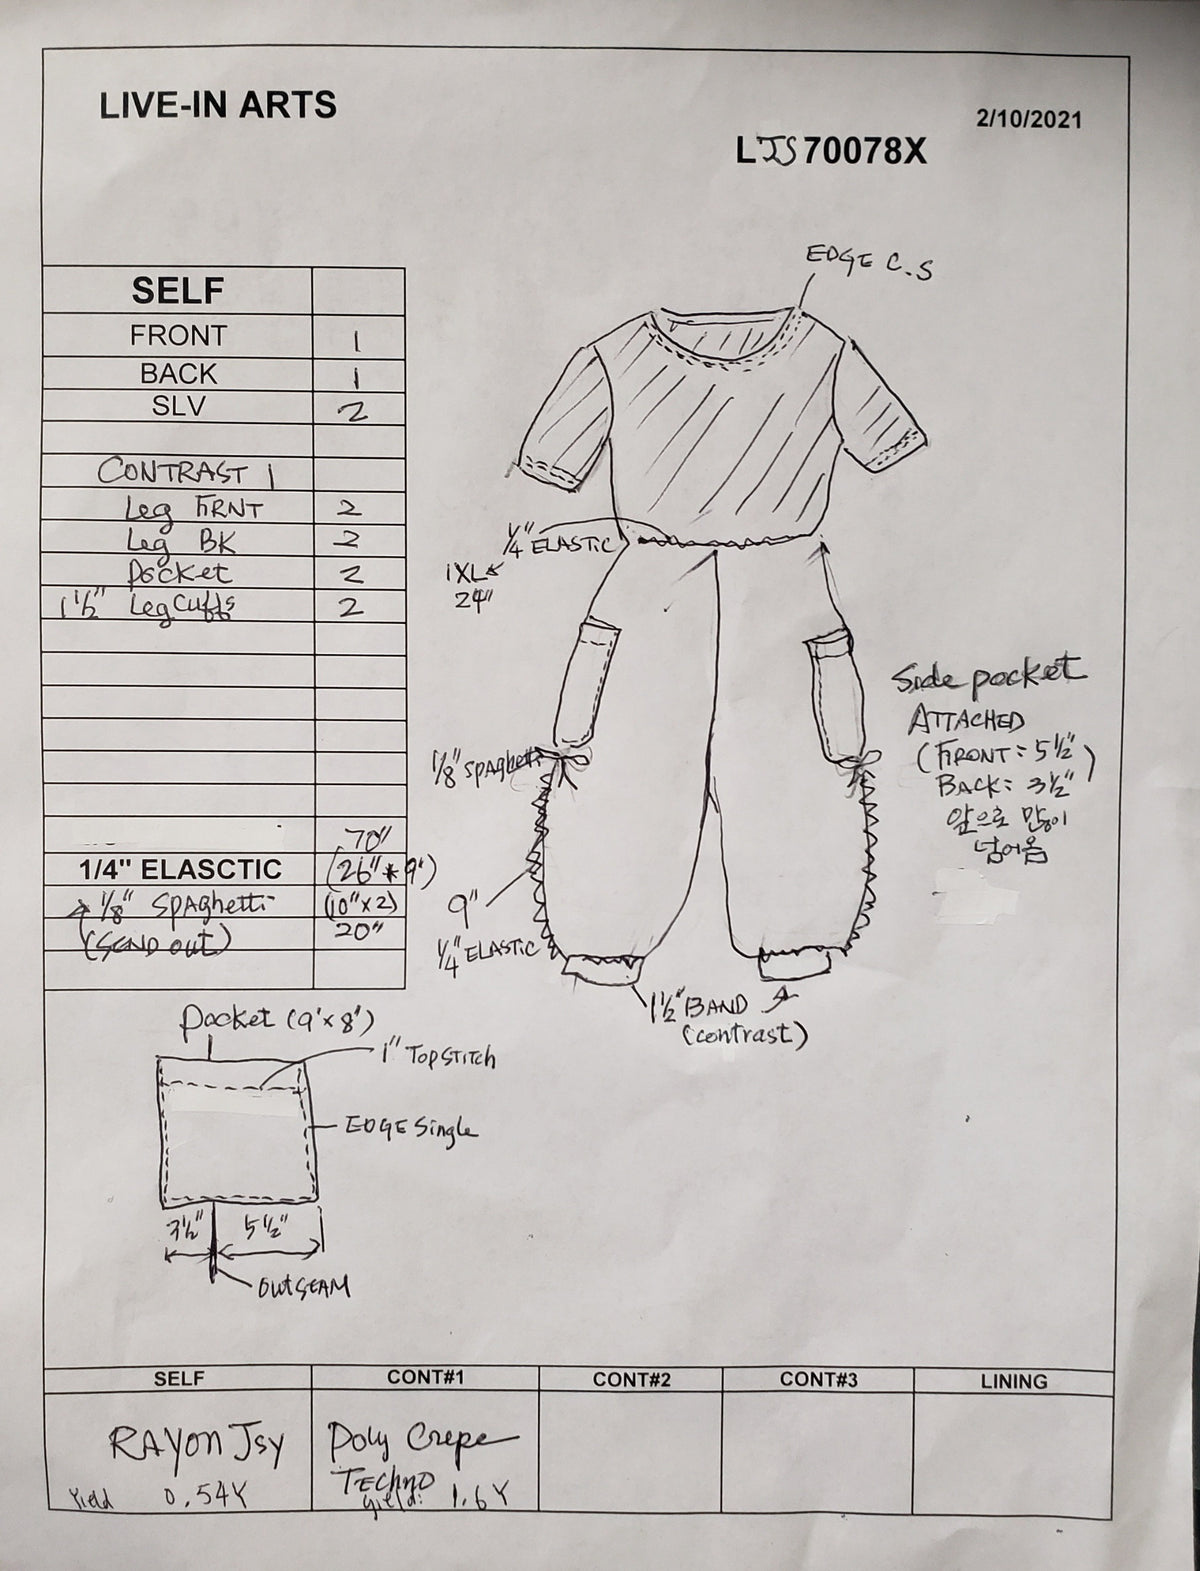 LIVE-IN ARTS
2/10/2021
LJS70078X
EDGE C.S
SELF
FRONT 1
BACK 1
SLV 2
CONTRAST 1
Leg FRNT 2
Leg BK 2
Pocket 2
1 1/2" Leg Cuffs 2
70"
1/4" ELASCTIC (26" * 9")
1/8" Spaghetti (10" x 2)
(SEND out) 20"
1/4" ELASTIC
1XL
24"
1/8" Spaghetti
Side pocket
ATTACHED
(FRONT = 5 1/2"
BACK: 3 1/2")
앞으로 많이
넘어옴
9"
1/4" ELASTIC
1 1/2" BAND
(contrast)
Pocket (9" x 8")
1" TOPSTITCH
EDGE Single
3 1/2" 5 1/2"
OUTSEAM
SELF CONT#1 CONT#2 CONT#3 LINING
RAYON Jsy
Yield 0.54Y
Poly Crepe
TECHNO
yield: 1.6Y